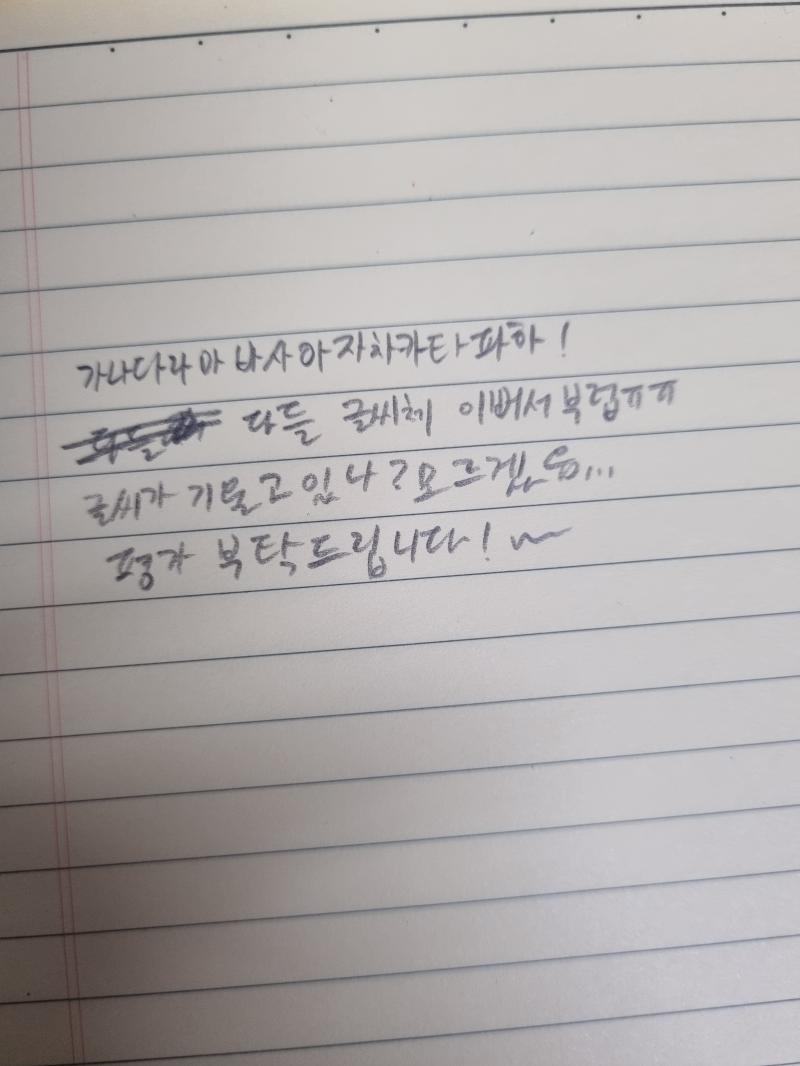 가나다라마바사아자차카타파하!
다들 글씨체 이뻐서 부럽ㅠㅠ
글씨가 기울고 있나? 모르겠음...
평가 부탁드립니다! ~